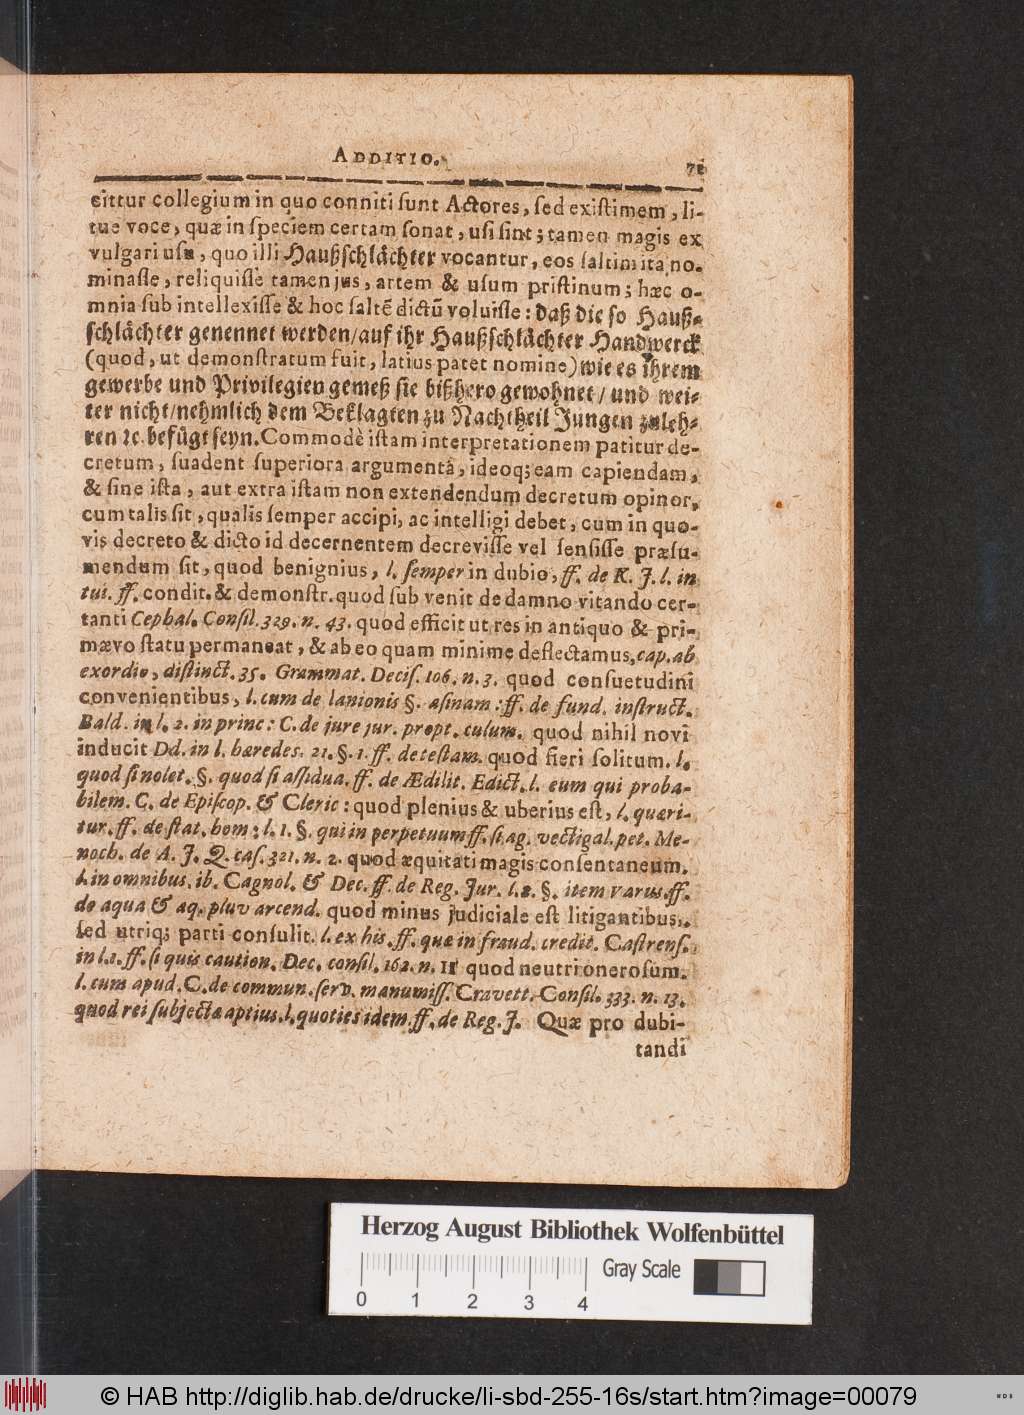 ADDITIO. 71
cittur collegium in quo conniti ſunt Actores, ſed exiſtimem, li-
tue voce, quæ in ſpeciem certam ſonat, uſi ſint; tamen magis ex
vulgari uſu, quo illi Haußſchlächter vocantur, eos ſaltim ita no-
minaſſe, reliquiſſe tamen jus, artem & uſum priſtinum; hæc o-
mnia ſub intellexiſſe & hoc ſaltẽ dictũ voluiſſe: daß die ſo Hauß-
ſchlächter genennet werden/auf ihr Haußſchlächter Handwerck
(quod, ut demonſtratum fuit, latius patet nomine) wie es ihrem
gewerbe und Privilegien gemeß ſie bißhero gewohnet/ und wei-
ter nicht/nehmlich dem Beklagten zu Nachtheil Jungen zu leh-
ren ꝛc. befügt ſeyn. Commodè iſtam interpretationem patitur de-
cretum, ſuadent ſuperiora argumentâ, ideoq; eam capiendam,
& ſine iſta, aut extra iſtam non extendendum decretum opinor,
cum talis ſit, qualis ſemper accipi, ac intelligi debet, cum in quo-
vis decreto & dicto id decernentem decreviſſe vel ſenſiſſe præſu-
mendum ſit, quod benignius, l. ſemper in dubio, ff. de R. J. l. in
tui. ff. condit. & demonſtr. quod ſub venit de damno vitando cer-
tanti Cephal. Conſil. 329. n. 43. quod efficit ut res in antiquo & pri-
mævo ſtatu permaneat, & ab eo quam minime deflectamus, cap. ab
exordio, diſtinct. 35. Grammat. Deciſ. 106. n. 3. quod conſuetudini
convenientibus, l. cum de lanionis §. aſinam: ff. de fund. inſtruct.
Bald. in l. 2. in princ: C. de jure jur. propt. culum. quod nihil novi
inducit Dd. in l. hæredes. 21. §. 1. ff. de teſtam. quod fieri ſolitum. l.
quod ſi nolet. §. quod ſi aſſidua. ff. de Ædilit. Edict. l. eum qui proba-
bilem. C. de Epiſcop. & Cleric: quod plenius & uberius eſt, l. quæri-
tur. ff. de ſtat. hom: l. 1. §. qui in perpetuum ff. ſi ag. vectigal. pet. Me-
noch. de A. J. Q. caſ. 321. n. 2. quod æquitati magis conſentaneum.
l. in omnibus. ib. Cagnol. & Dec. ff. de Reg. Jur. l. 2. §. item varus. ff.
de aqua & aq. pluv arcend. quod minus judiciale eſt litigantibus,
ſed utriq; parti conſulit. l. ex his. ff. quæ in fraud. credit. Caſtrenſ.
in l. 1. ff. ſi quis caution. Dec. conſil. 162. n. 11 quod neutri oneroſum.
l. cum apud. C. de commun. ſerv. manumiſſ. Cravett. Conſil. 333. n. 13.
quod rei ſubjectæ aptius. l. quoties idem. ff. de Reg. J. Quæ pro dubi-
tandi
Herzog August Bibliothek Wolfenbüttel
Gray Scale
0 1 2 3 4
© HAB http://diglib.hab.de/drucke/li-sbd-255-16s/start.htm?image=00079
WDB